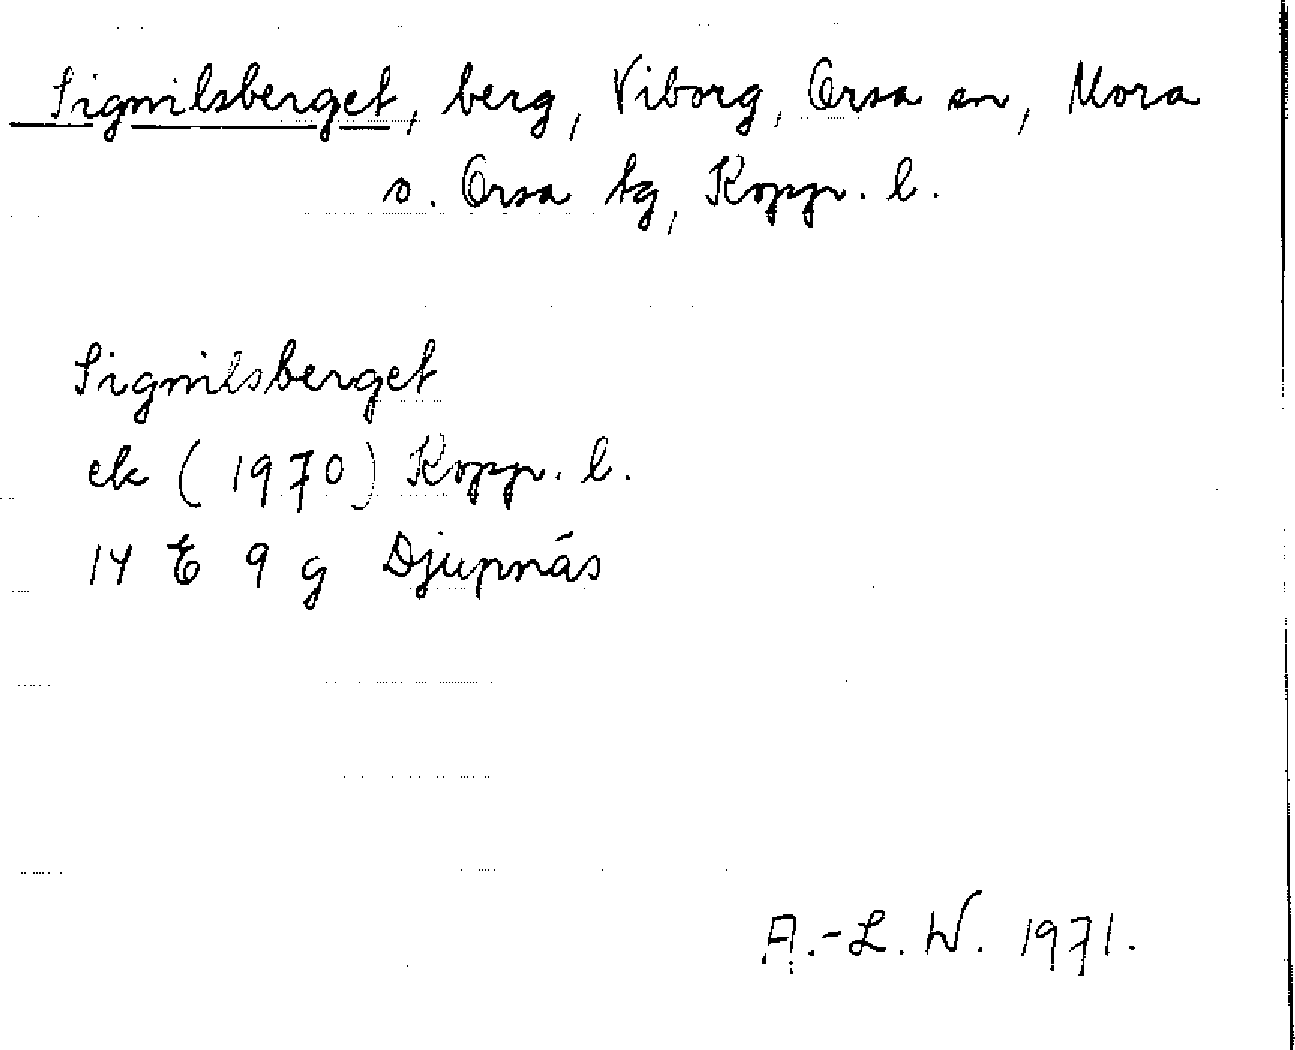 Signilsberget, berg, Viborg, Orsa sn, Mora
o. Orsa tg, Kopp. l.
Signilsberget
ek (1970) Kopp. l.
14 E 9 g Djupnäs
A.-L. W. 1971.